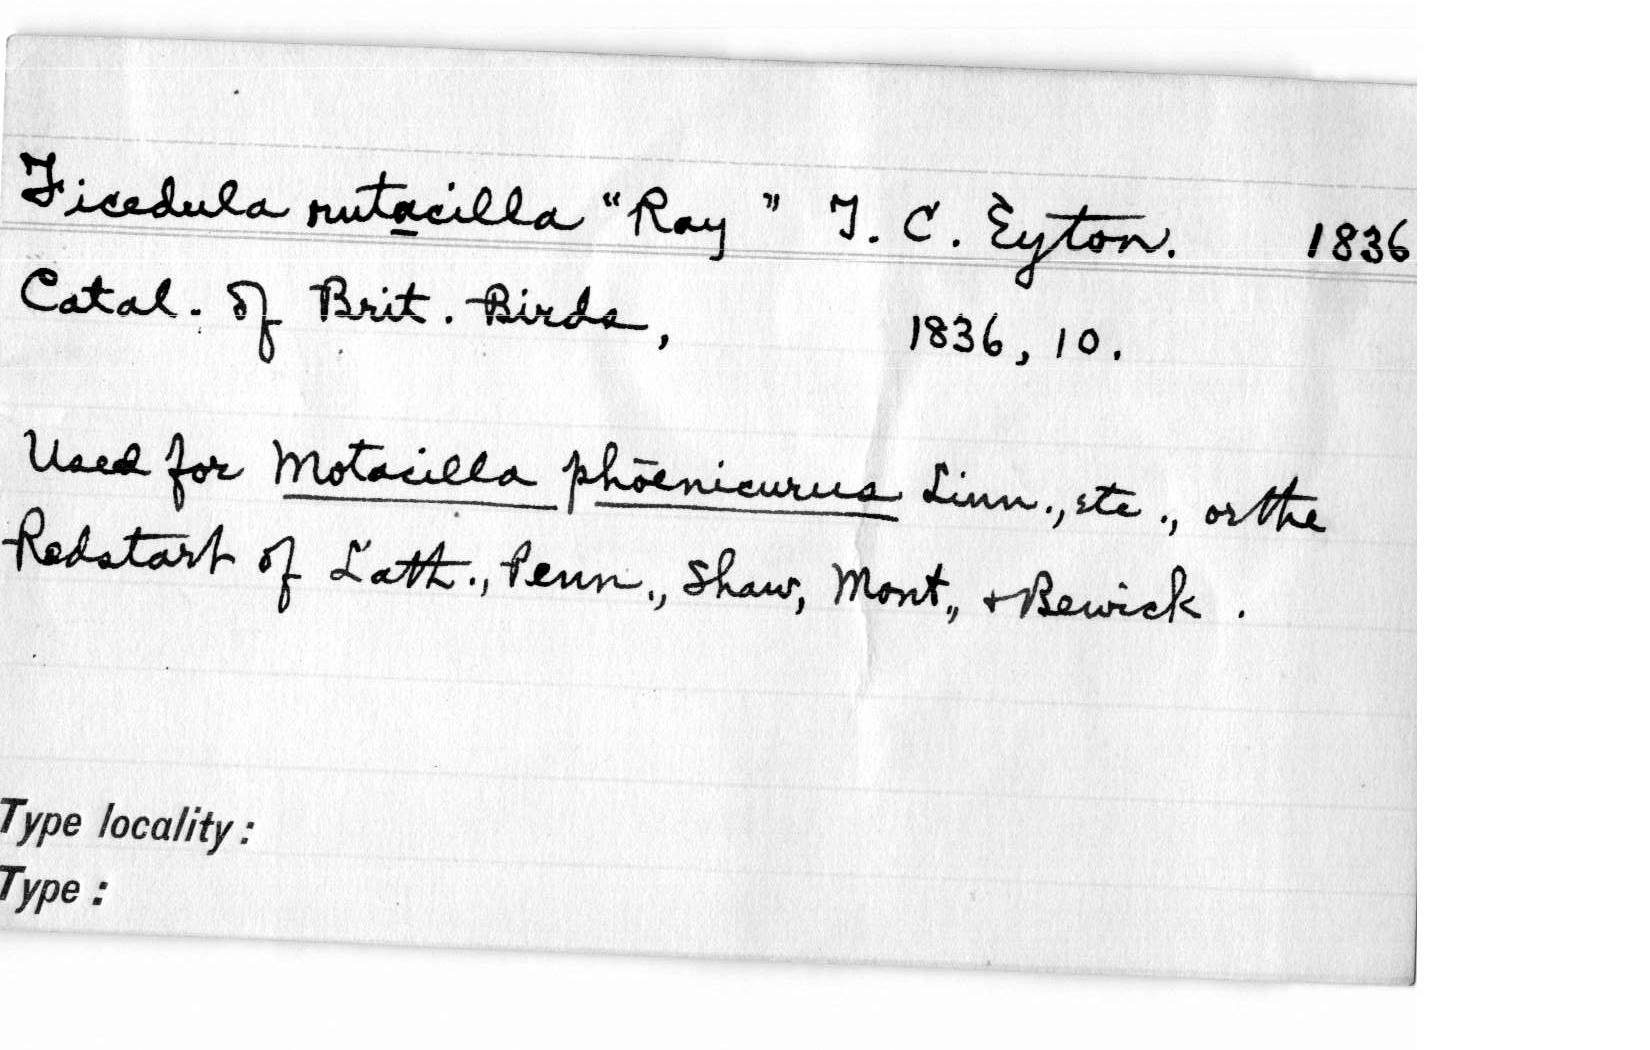 Ficedula rutacilla “Ray” T. C. Eyton. 1836
Catal. of Brit. Birds, 1836, 10.
Used for Motacilla phōenicurus Linn., etc., or the
Redstart of Lath., Penn., Shaw, Mont., & Bewick.
Type locality:
Type: